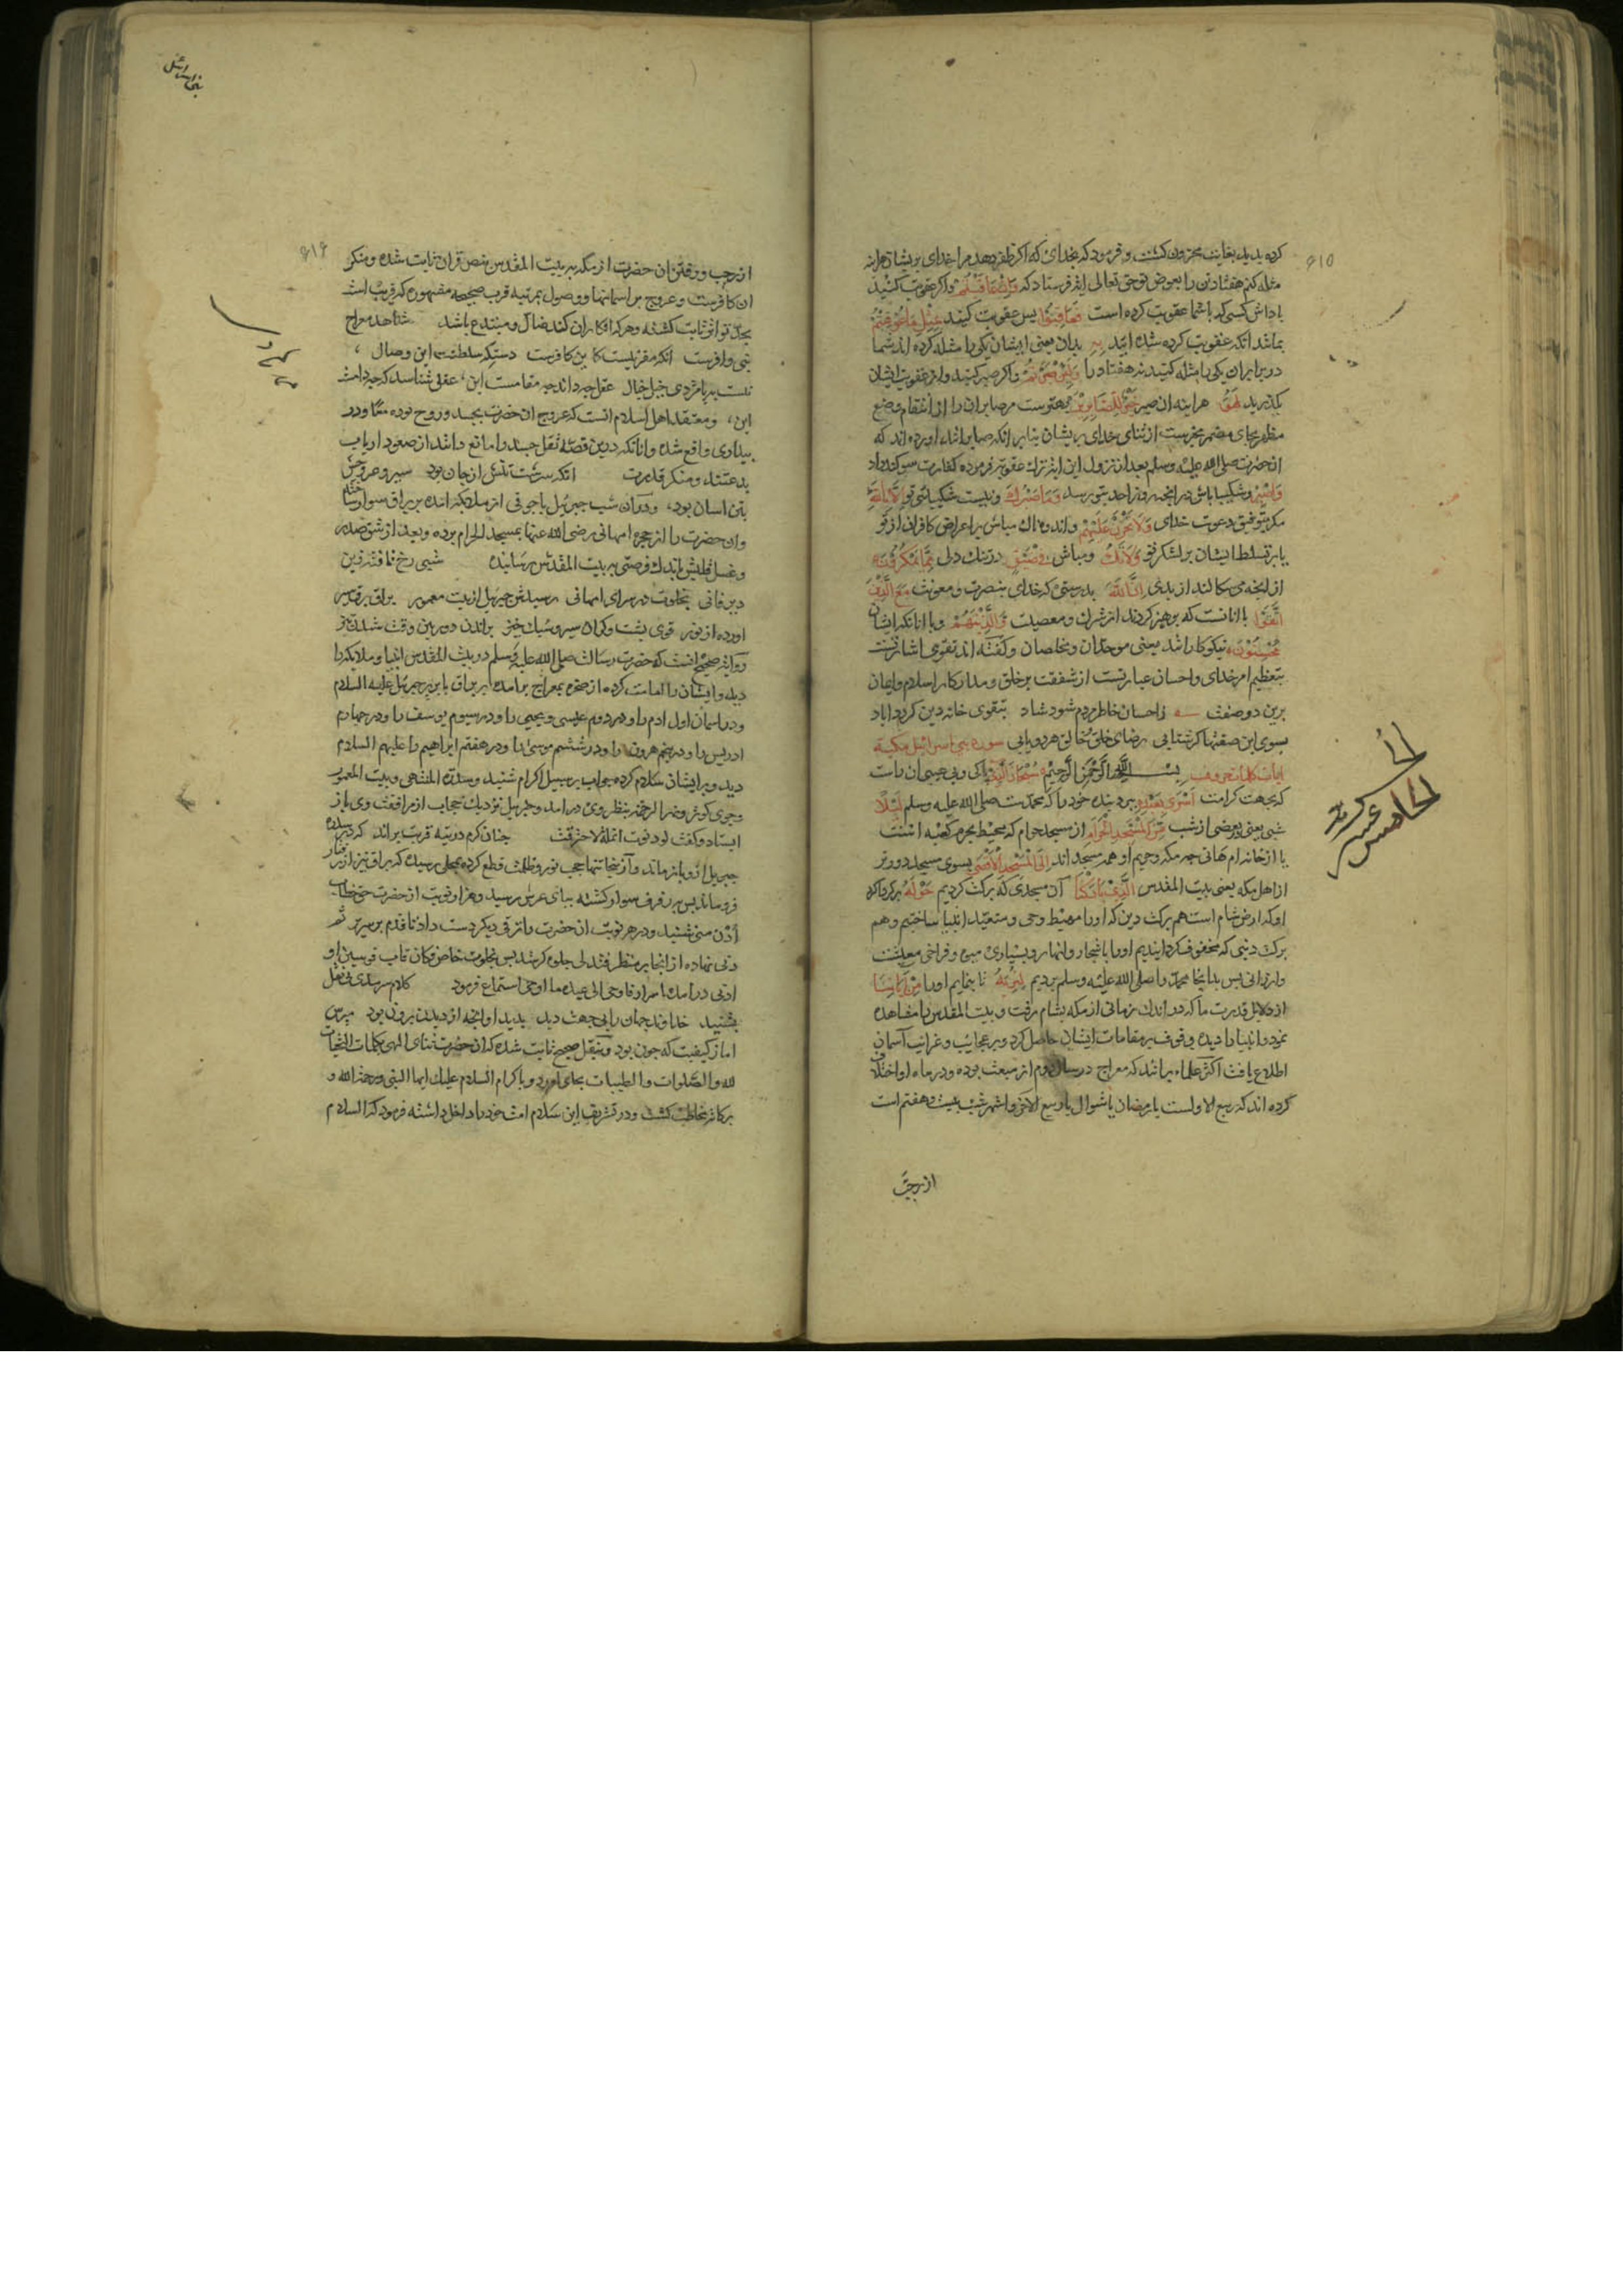 ۶۱۵
کرده بدید بغایت محزون کشت و فرمود که بخدای که اکر ظفر دهد مرا خدای بریشان هراینه
مثله کنم هفتاد تن را بعوض تو حق تعالی ایة فرستاد که وَاِنْ عَاقَبْتُمْ و اکر عقوبت کنید
پاداش کسی که باشما عقوبت کرده است فَعَاقِبُوا پس عقوبت کنید بِمِثْلِ مَا عُوقِبْتُمْ
بمانند انکه عقوبت کرده شده ایید بِهِ بدان یعنی ایشان یکی را مثله کرده اند شما
در برابر ان یکی را مثله کنید نه هفتاد را وَلَئِنْ صَبَرْتُمْ و اکر صبر کنید و از عقوبت ایشان
بکذرید لَهُوَ هراینه ان صبر خَيْرٌ لِلصَّابِرِينَ بهترست مر صابران را از انتقام وضع
مظهر بجای مضمر مخبرست از ثنای خدای بریشان بنابر انکه صابرانند اورده اند که
انحضرت صلی الله علیه وسلم بعد از نزول این ایة ترک عقوبت فرموده کفارت سوکند داد
وَاصْبِرْ و شکیبا باش در انچه روز احد بتو رسد وَمَا صَبْرُكَ و نیست شکیبائی تو اِلَّا بِاللّٰهِ
مکر بتوفیق دعوت خدای وَلَا تَحْزَنْ عَلَيْهِمْ و اندوهناک مباش بر اعراض کافران از تو
یا بر تسلط ایشان بر لشکر تو وَلَا تَكُ و مباش فِي ضَيْقٍ در تنک دلی مِمَّا يَمْكُرُونَ
از انچه می سکالند از بدی اِنَّ اللّٰهَ بدرستی که خدای بنصرت و معونت مَعَ الَّذِينَ
اتَّقَوْا با انانست که پرهیز کردند از شرک و معصیت وَالَّذِينَ هُمْ و با انانکه ایشان
مُحْسِنُونَ نیکوکارانند یعنی موحدان و مخلصان و کفته اند تقوی اشارتست
بتعظیم امر خدای و احسان عبارتست از شفقت بر خلق و مدار کار اسلام و ایمان
برین دو صفت ز احسان خاطر مردم شود شاد بتقوی خانه دین کردد اباد
بسوی این صفتها کر شتابی رضای خلق و خالق هر دو یابی سوره بنی اسرائیل مکیة
ایات کلمات حروف بسم الله الرحمن الرحیم سُبْحَانَ الَّذِي پاکی و بی عیبی ان راست
که بجهت کرامت اَسْرَى بِعَبْدِهِ ببرد بنده خود را که محمدست صلی الله علیه وسلم لَيْلًا
شبی یعنی ببعضی از شب مِنَ الْمَسْجِدِ الْحَرَامِ از مسجد حرام که محیط بحرم کعبه است
یا از خانه ام هانی چه مکه و حریم او همه مسجد اند اِلَى الْمَسْجِدِ الْاَقْصَى بسوی مسجد دورتر
از اهل مکه یعنی بیت المقدس الَّذِي بَارَكْنَا آن مسجدی که برکت کردیم حَوْلَهُ بر کرداکرد
او که ارض شام است هم برکت دین که اورا مهبط وحی و متعبد انبیا ساختیم و هم
برکت دنیی که محفوف کردانیدیم اورا باشجار و انهار و بسیاری میوه و فراخی معیشت
و ارزانی پس بدانجا محمد را صلی الله علیه وسلم بردیم لِنُرِيَهُ تا بنمایم اورا مِنْ آيَاتِنَا
از دلایل قدرت ما که در اندک زمانی از مکه بشام رفت و بیت المقدس را مشاهده
نمود و انبیا را دیده وقوف بر مقامات ایشان حاصل کرد و بر عجایب و غرایب آسمان
اطلاع یافت اکثر علماء برانند که معراج در سال دوم از مبعث بوده و در ماه او اختلاف
کرده اند که ربیع الاولست یا رمضان یا شوال یا ربیع الاخر و اشهر شب بیست و هفتم است
از رجب
الخامس عشر
بنی اسرائیل
۶۱۶
از رجب و رفتن ان حضرت از مکه به بیت المقدس بنص قران ثابت شده و منکر
ان کافرست و عروج بر اسمانها و وصول بمرتبه قرب صحیحه مشهوره که قریب است
بحد تواتر ثابت کشته و هرکه انکار ان کند ضال و مبتدع باشد شاهد معراج
نبی وافرست انکه مقر نیست کافرست دستکه سلطنت این وصال
نیست به پامردی خیل خیال عقل چه داند چه مقامست این عشق شناسد که چه دامست
این و معتقد اهل اسلام انست که عروج ان حضرت بجسد و روح بوده معا و در
بیداری واقع شده و انانکه درین قصه ثقل جسد را مانع دانند از صعود ارباب
بدعتند و منکر قدرت انکه سرشت تنش از جان بود سیر و عروجش
بتن اسان بود و در ان شب جبرئیل با جوقی از ملائکه امده بر براق سوار ساخته
و ان حضرت را از حجره امهانی رضی الله عنها بمسجد الحرام برده و بعد از شق صدر
و غسل قلبش باندک فرصتی به بیت المقدس رسانیده شبی رخ تافته زین
دیر فانی بخلوت در سرای امهانی رسیدش جبرئیل از بیت معمور براق برق سیر
اورده از نور قوی پشت و کران سیر و سبک خیز براندن دوربین وقت شدن تیز
روایت صحیح انست که حضرت رسالت صلی الله علیه وسلم در بیت المقدس انبیا و ملایکه را
دیده و ایشان را امامت کرده از صخره بمعراج برامده بر براق یا بر پر جبرئیل علیه السلام
و در اسمان اول ادم را و در دوم عیسی و یحیی را و در سیوم یوسف را و در چهارم
ادریس را و در پنجم هرون را و در ششم موسی را و در هفتم ابراهیم را علیهم السلام
دید و بر ایشان سلام کرده جواب بر سبیل اکرام شنید و سدره المنتهی و بیت المعمور
و جوی کوثر و نهر الرحمه بنظر وی درامد و جبرییل نزدیک حجاب از مرافقت وی باز
ایستاد و کفت لو دنوت انملة لاحترقت چنان کرم در تیه قربت براند که در سدره
جبریل ازو باز ماند و از انجا تنها حجب نور و ظلمت قطع کرده بمحلی رسید که براق نیز از رفتار
فرو ماند پس بر رفرف سوار کشته بپای عرش رسید و هزار نوبت از حضرت حق خطاب
اُدْنُ منی شنید و در هر نوبت ان حضرت را ترقی دیکر دست داد تا قدم بر سریر ثم
دنی نهاده از انجا بر منظر فتدلی جلوه کر شد پس بخلوت خاص فکان قاب قوسین او
ادنی درامده اسرار فاوحی الی عبده ما اوحی استماع فرمود کلام سرمدی بی نقل
بشنید خداوند جهان را بی جهت دید بدید او انچه از دیدن برون بود مپرس
اما ز کیفیت که چون بود و بنقل صحیح ثابت شده که ان حضرت ثنای الهی بکلمات التحیات
لله والصلوات والطیبات بجای اورد و باکرام السلام علیک ایها النبی ورحمة الله و
برکاته مخاطب کشت و در تشریف این سلام امت خود را داخل داشته فرمود که السلام